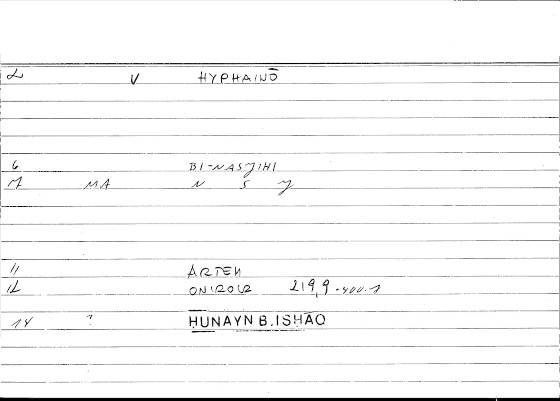 2 V HYPHAINŌ
6 BI-NASJIHI
7 MA N S J
11 ARTEM
12 ONIROCR 219,9 - 400.1
14 ? HUNAYN B. ISHĀQ